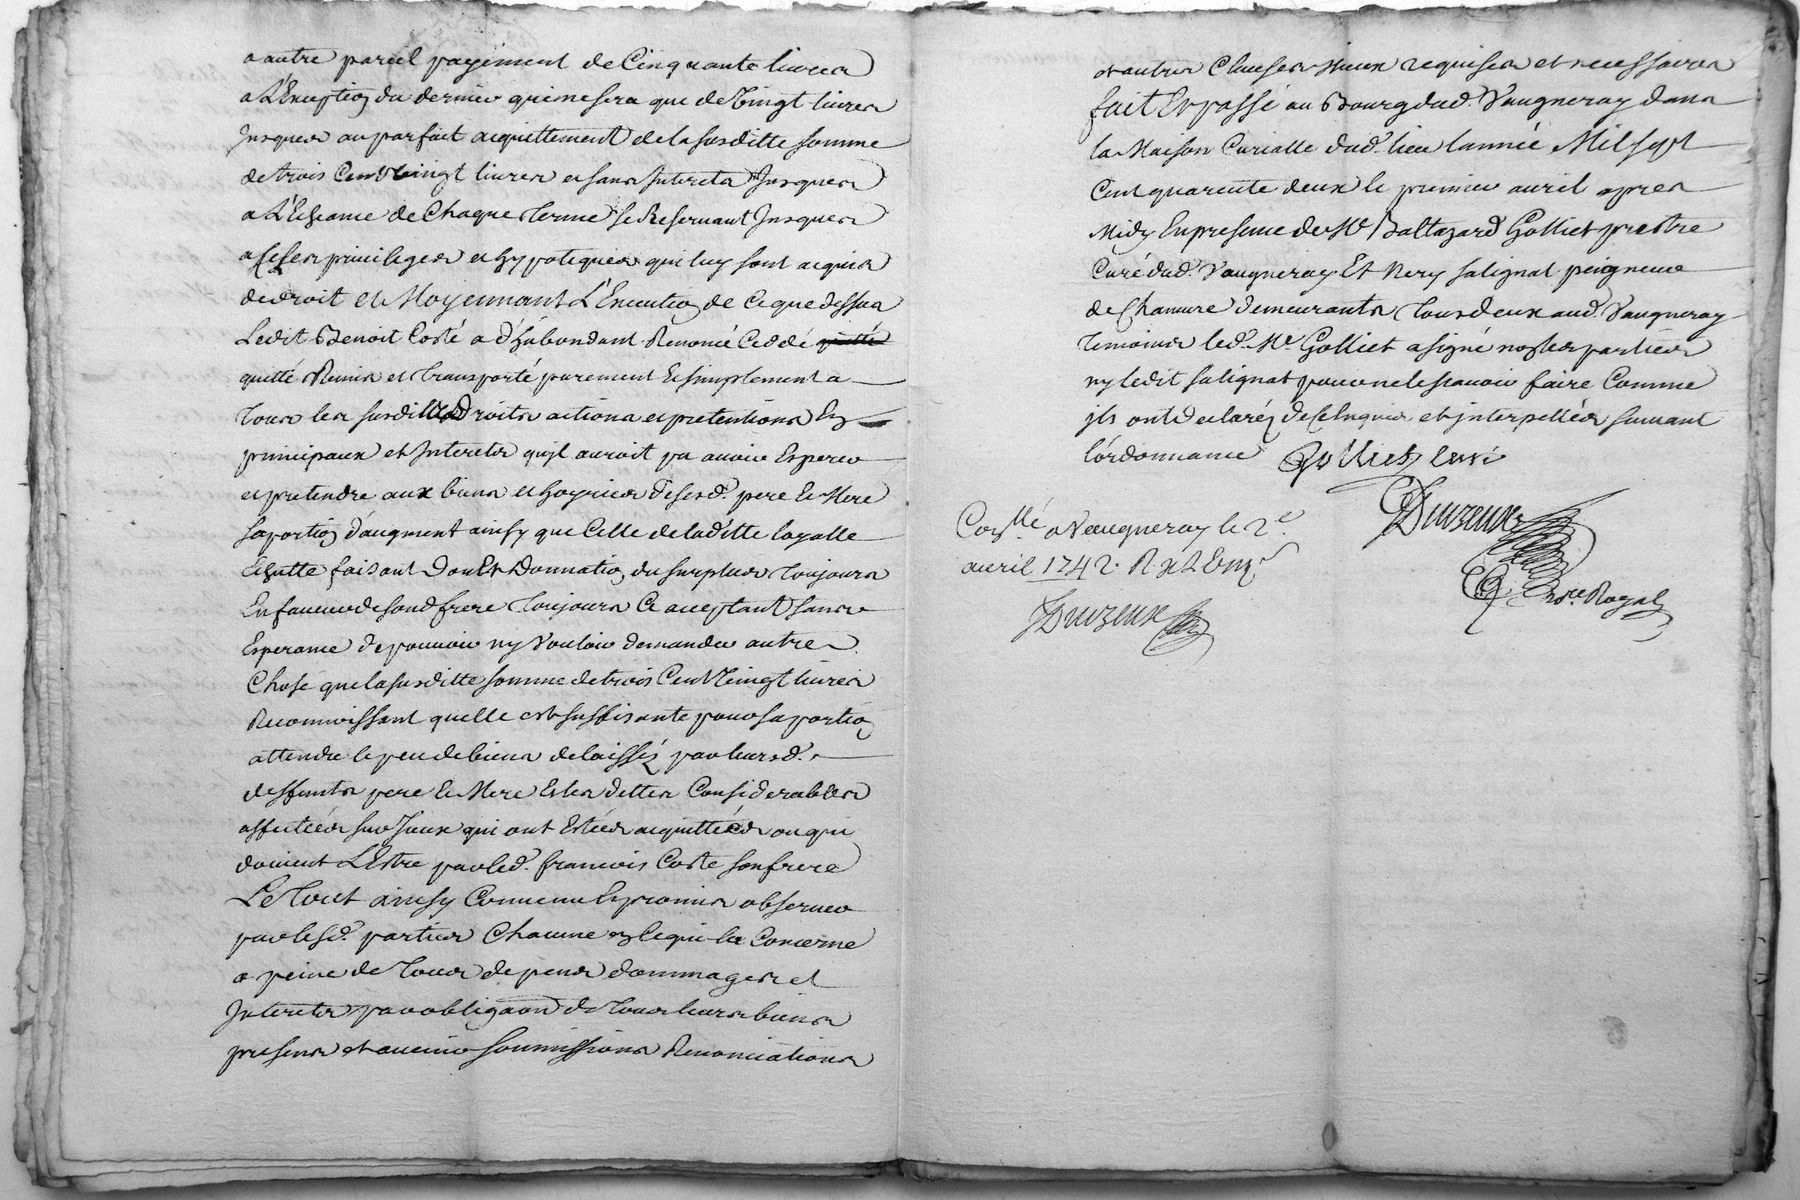 a autre pareil payement de Cinquante livres
a L'Exeption du dernier qui ne sera que de Vingt livres
Jusques au parfait acquittement de la susditte somme
de trois Cent Vingt livres et sans Interets Jusques
a L'Echeance de Chaque Terme se Reservant Jusques
a ce ses privileges et hypoteques qui luy sont acquis
de droit et Moyennant L'Execution de Ce que dessus
Ledit Benoit Coste a d'habondant Renoncé Ceddé quitté
quitté Remis et transporté purement et simplement a
Tous les susdits Droits actions et pretentions En
principaux et Interets qu'jl auroit pu avoir Esperer
et pretendre aux biens et hoyries de sesd. pere et Mere
sa portion d'augment ainsy que Celle de laditte
faisant Don Et Donnation du surplus Toujours
En faveur de sond frere Toujours Ce aceptant sans
Esperance de pouvoir ny Vouloir demander autre
Chose que la susditte somme de trois Cent Vingt livres
Reconnoissant quelle est suffisante pour sa portion
attendu le peu de biens delaissés par leursd.
deffunts pere et Mere Et les dettes Considerables
affectées sur Jceux qui ont Estées acquittées ou qui
doivent L'Estre par led. francois Coste son frere
Le Tout ainsy Convenu et promis observer
par lesd. parties Chacune en Ce qui la Concerne
a peine de Tous depens dommages et
Interets par obligaon de Tous leurs biens
presens et avenir soumissions Renonciations
et autres Clauses Mieux requises et necessaires
fait Et passé au Bourg dud. Vaugneray dans
la Maison Curialle dud. lieu lannée Mil sept
Cent quarente deux le premier avril apres
Midy En presence de Mr Baltazard Golliet prestre
Curé dud. Vaugneray Et Nery salignat peigneur
de Chanvre demeurants Tous deux aud. Vaugneray
Temoins led. Mr Golliet a signé non les parties
ny ledit salignat pour ne le scavoir faire Comme
jls ont declaréz de Ce Enquis et jnterpellés suivant
l'ordonnance Golliet Curé
Duvzeux
nore Royal
Conllé a Vaugneray le 2e
avril 1742. R
Duvzeux